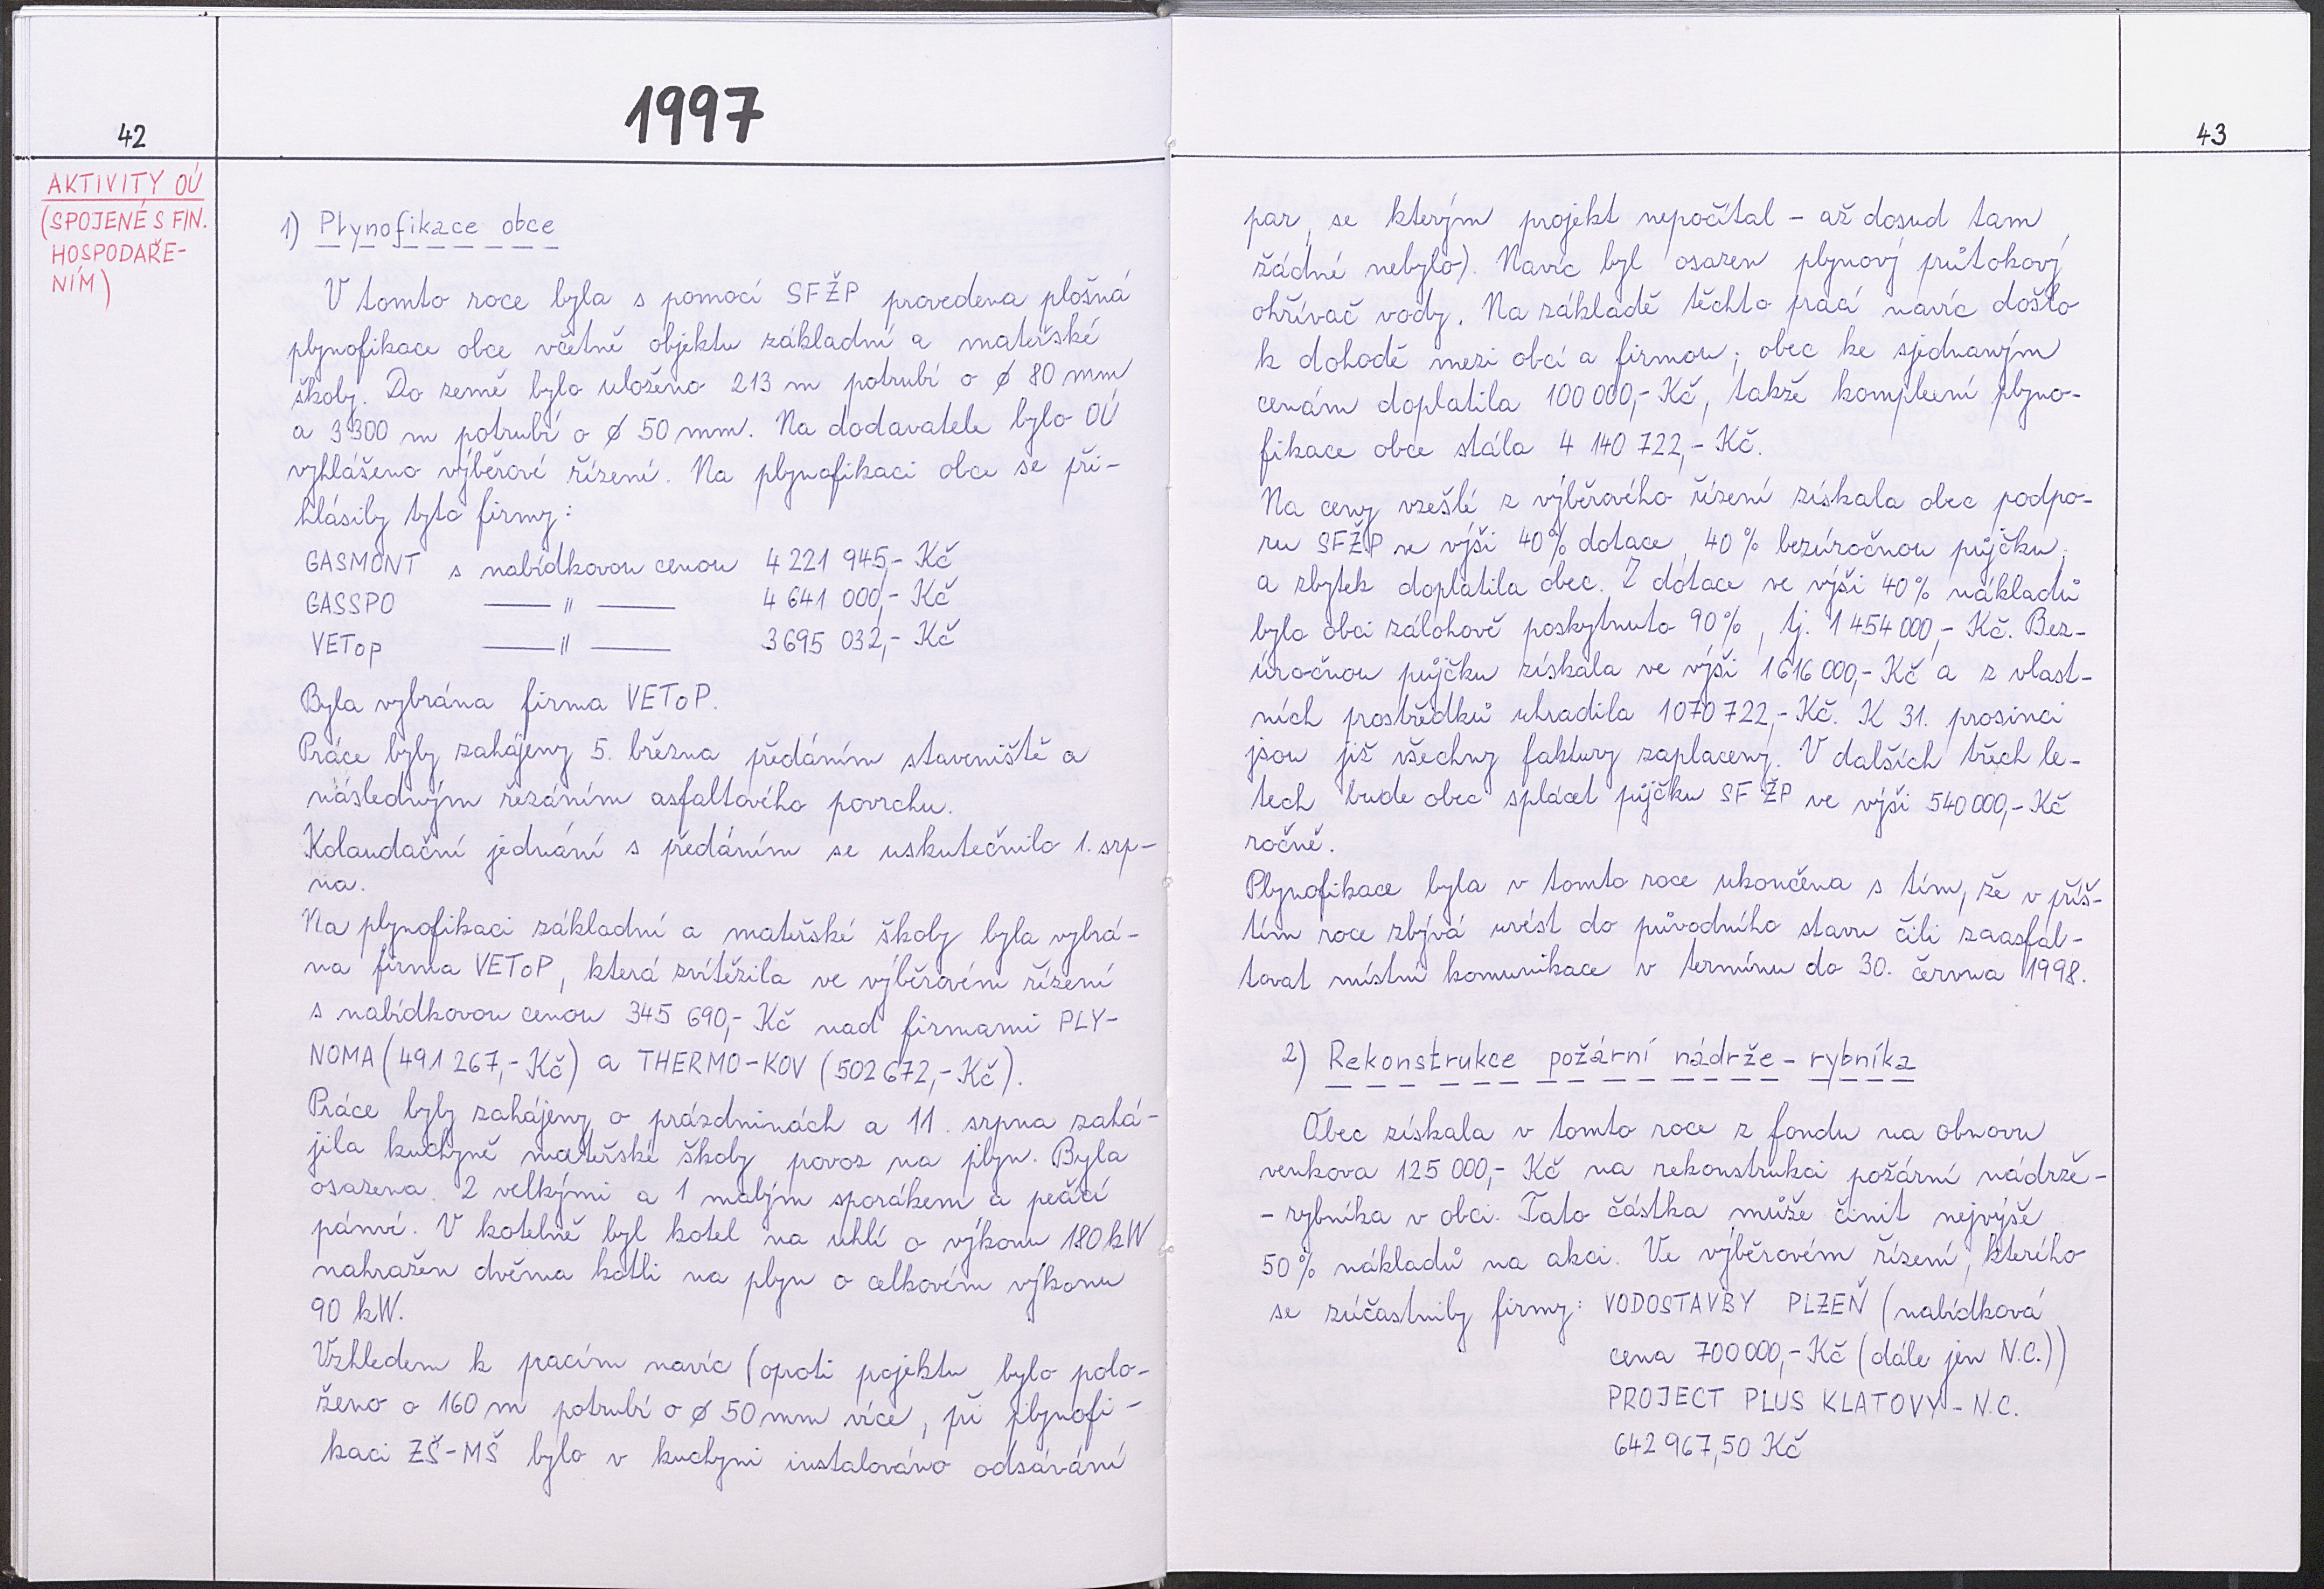 42
1997
AKTIVITY OÚ
(SPOJENÉ S FIN.
HOSPODAŘE-
NÍM)
1) Plynofikace obce
V tomto roce byla s pomocí SFŽP provedena plošná
plynofikace obce včetně objektu základní a mateřské
školy. Do země bylo uloženo 213 m potrubí o ø 80 mm
a 3300 m potrubí o ø 50 mm. Na dodavatele bylo OÚ
vyhlášeno výběrové řízení. Na plynofikaci obce se při-
hlásily tyto firmy:
GASMONT s nabídkovou cenou 4 221 945,- Kč
GASSPO —— " —— 4 641 000,- Kč
VEToP —— " —— 3 695 032,- Kč
Byla vybrána firma VEToP.
Práce byly zahájeny 5. března předáním staveniště a
následným řezáním asfaltového povrchu.
Kolaudační jednání s předáním se uskutečnilo 1. srp-
na.
Na plynofikaci základní a mateřské školy byla vybrá-
na firma VEToP, která zvítězila ve výběrovém řízení
s nabídkovou cenou 345 690,- Kč nad firmami PLY-
NOMA (491 267,- Kč) a THERMO-KOV (502 672,- Kč).
Práce byly zahájeny o prázdninách a 11. srpna zahá-
jila kuchyně mateřské školy provoz na plyn. Byla
osazena 2 velkými a 1 malým sporákem a pečící
pánví. V kotelně byl kotel na uhlí o výkonu 180 kW
nahražen dvěma kotli na plyn o celkovém výkonu
90 kW.
Vzhledem k pracím navíc (oproti pojektu bylo polo-
ženo o 160 m potrubí o ø 50 mm více, při plynofi-
kaci ZŠ-MŠ bylo v kuchyni instalováno odsávání
43
par, se kterým projekt nepočítal - až dosud tam
žádné nebylo). Navíc byl osazen plynový průtokový
ohřívač vody. Na základě těchto prací navíc došlo
k dohodě mezi obcí a firmou; obec ke sjednaným
cenám doplatila 100 000,- Kč, takže komplexní plyno-
fikace obce stála 4 140 722,- Kč.
Na ceny vzešlé z výběrového řízení získala obec podpo-
ru SFŽP ve výši 40% dotace, 40% bezúročnou půjčku
a zbytek doplatila obec. Z dotace ve výši 40% nákladů
bylo obci zálohově poskytnuto 90%, tj. 1 454 000,- Kč. Bez-
úročnou půjčku získala ve výši 1 616 000,- Kč a z vlast-
ních prostředků uhradila 1 070 722,- Kč. K 31. prosinci
jsou již všechny faktury zaplaceny. V dalších třech le-
tech bude obec splácet půjčku SF ŽP ve výši 540 000,- Kč
ročně.
Plynofikace byla v tomto roce ukončena s tím, že v příš-
tím roce zbývá uvést do původního stavu čili zaasfal-
tovat místní komunikace v termínu do 30. června 1998.
2) Rekonstrukce požární nádrže - rybníka
Obec získala v tomto roce z fondu na obnovu
venkova 125 000,- Kč na rekonstrukci požární nádrže-
- rybníka v obci. Tato částka může činit nejvýše
50% nákladů na akci. Ve výběrovém řízení, kterého
se zúčastnily firmy: VODOSTAVBY PLZEŇ (nabídková
cena 700 000,- Kč (dále jen N.C.))
PROJECT PLUS KLATOVY - N.C.
642 967,50 Kč